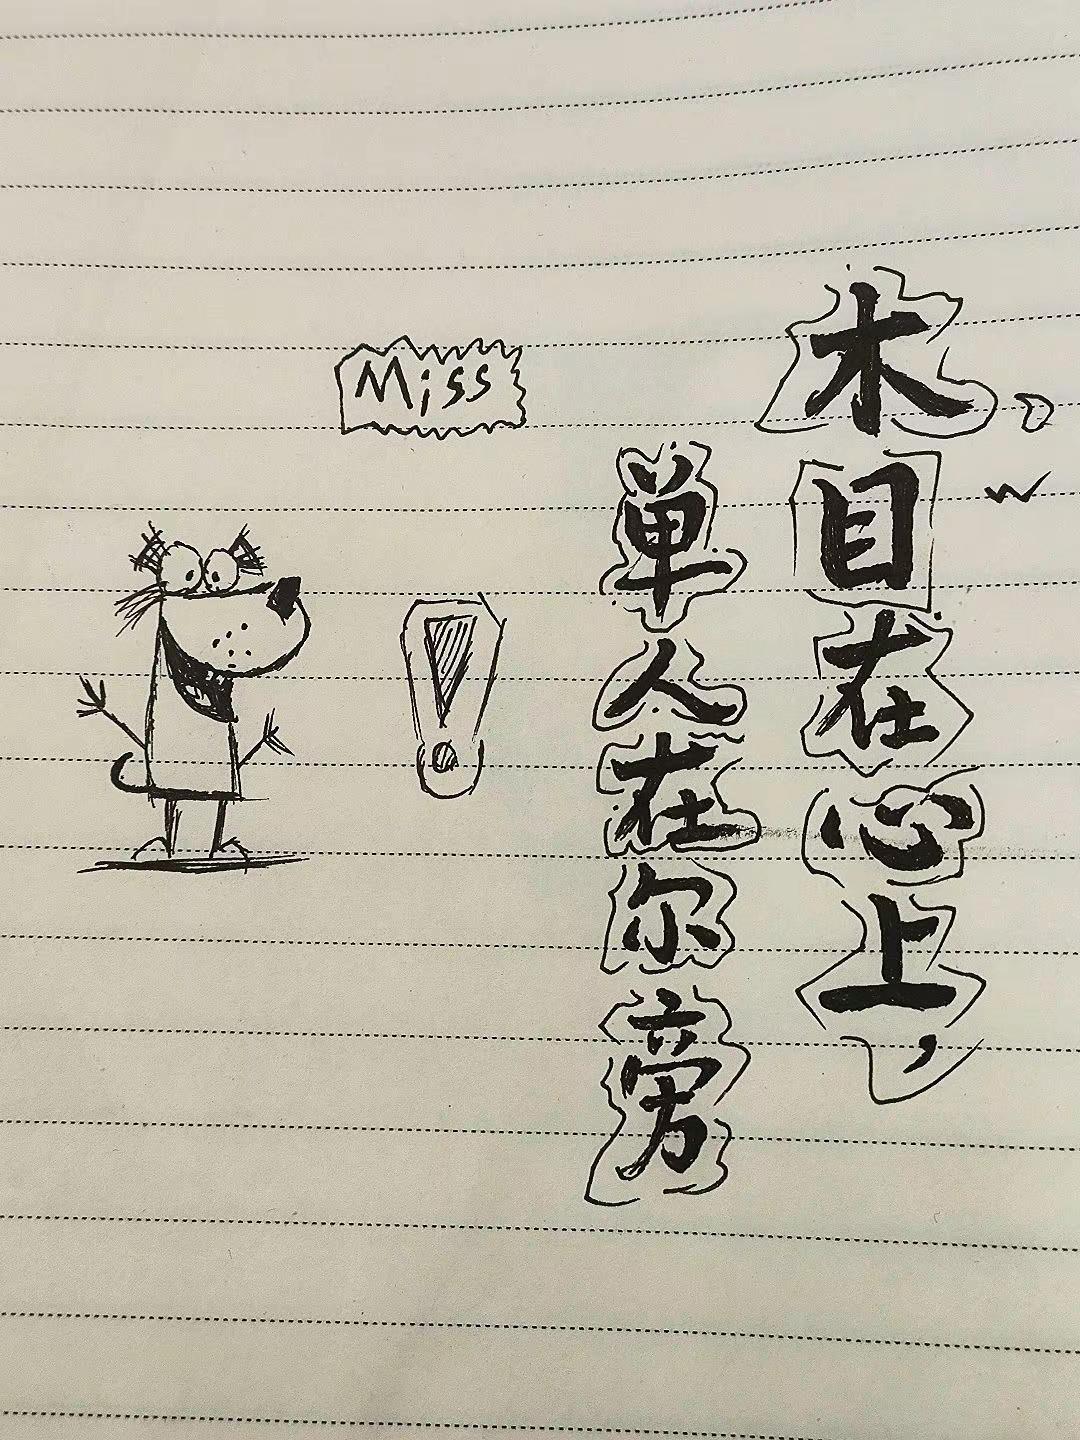 木目在心上，
单人在尔旁
！
Miss